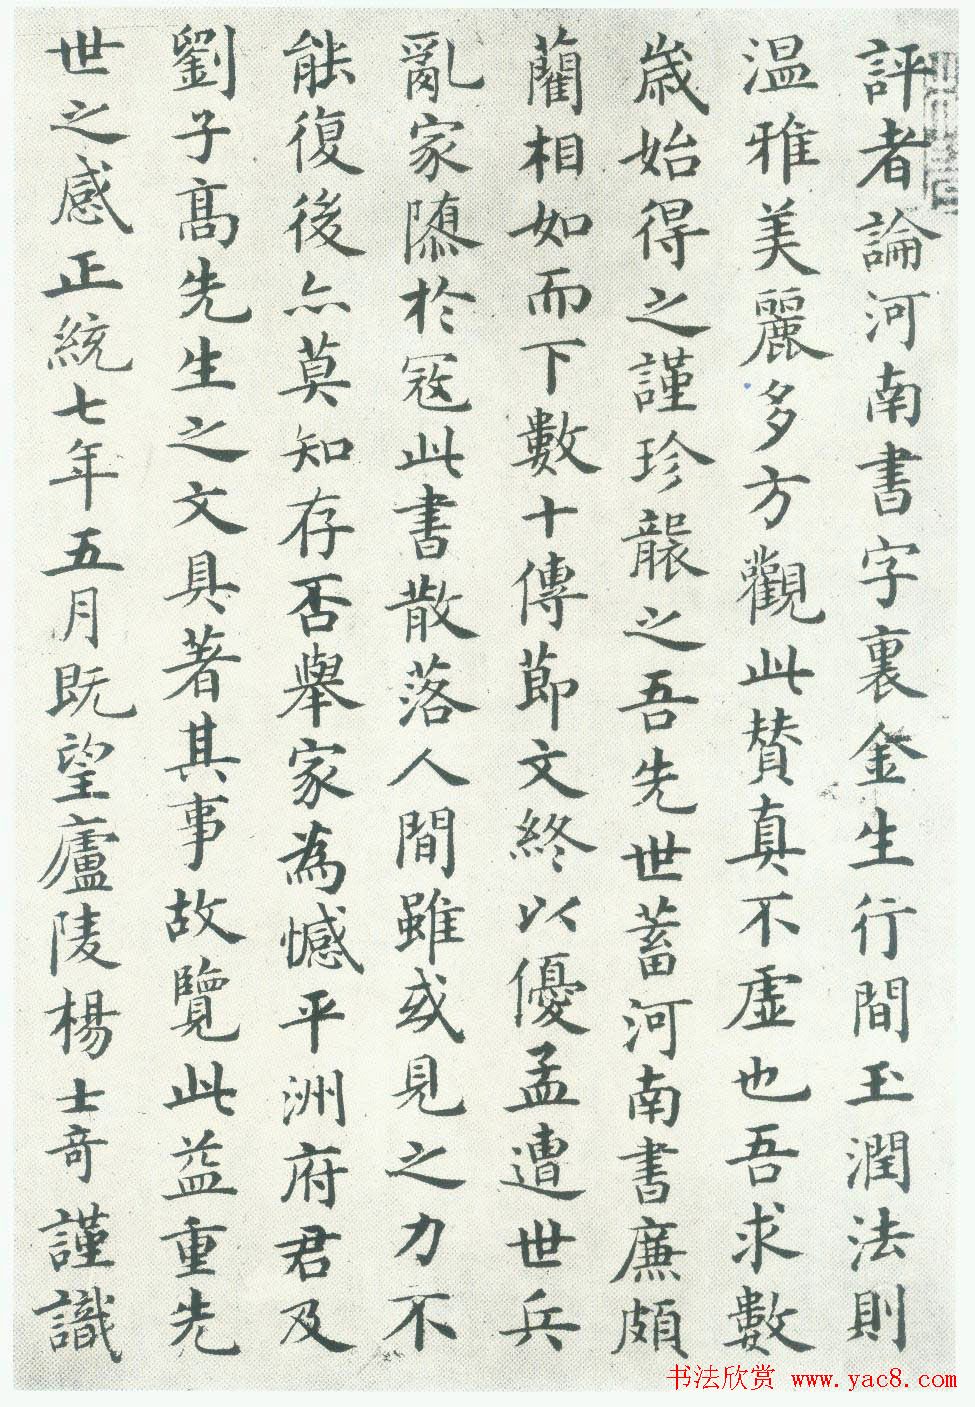 評者論河南書字裏金生行間玉潤法則
温雅美麗多方觀此賛真不虚也吾求數
歳始得之謹珍襲之吾先世蓄河南書廉頗
藺相如而下數十傳節文終以優孟遭世兵
亂家隳於冦此書散落人間雖或見之力不
能復後亦莫知存否舉家為憾平洲府君及
劉子髙先生之文具著其事故覽此益重先
世之感正統七年五月既望廬陵楊士竒謹識
书法欣赏 www.yac8.com